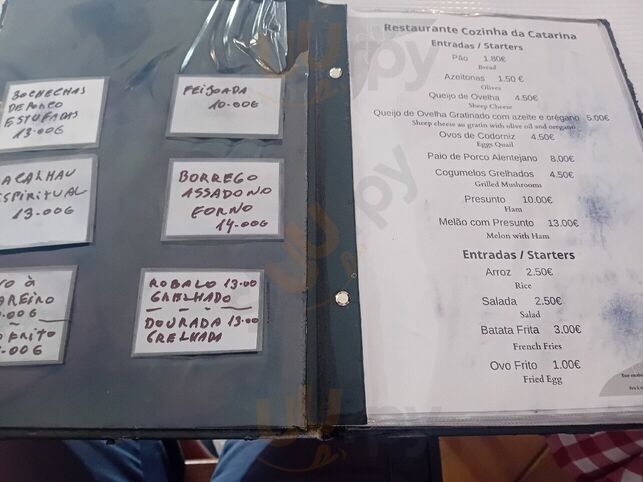 BOCHECHAS
DE PORCO
ESTUFADAS
13.00€
FEIJOADA
10.00€
ACALHAU
ESPIRITUAL
13.00€
BORREGO
ASSADO NO
FORNO
14.00€
ROBALO 13.00
GRELHADO
DOURADA 13.00
GRELHADA
Restaurante Cozinha da Catarina
Entradas / Starters
Pão 1.80€
Bread
Azeitonas 1.50 €
Olives
Queijo de Ovelha 4.50€
Sheep Cheese
Queijo de Ovelha Gratinado com azeite e orégano 5.00€
Sheep cheese au gratin with olive oil and oregano
Ovos de Codorniz 4.50€
Eggs Quail
Paio de Porco Alentejano 8.00€
Cogumelos Grelhados 4.50€
Grilled Mushrooms
Presunto 10.00€
Ham
Melão com Presunto 13.00€
Melon with Ham
Entradas / Starters
Arroz 2.50€
Rice
Salada 2.50€
Salad
Batata Frita 3.00€
French Fries
Ovo Frito 1.00€
Fried Egg